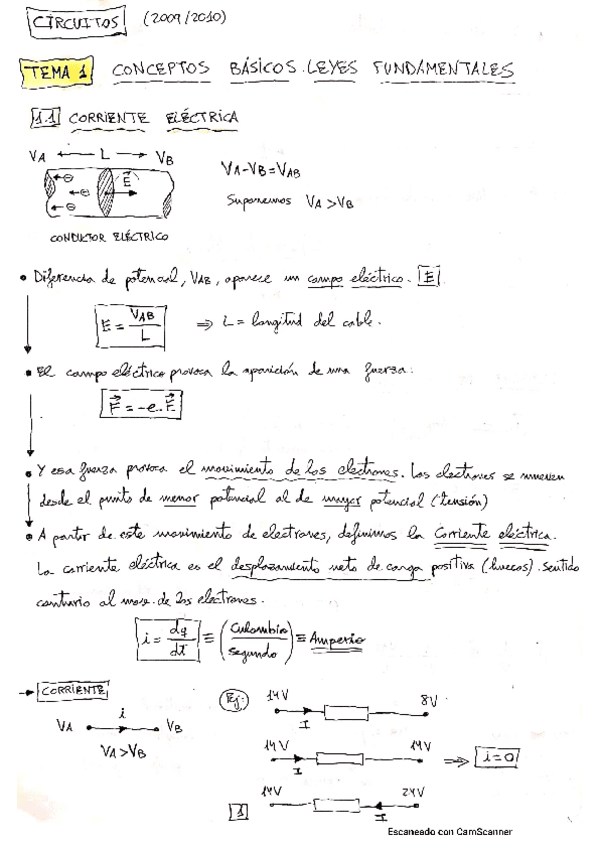 CIRCUITOS (2009/2010)
TEMA 1 CONCEPTOS BÁSICOS. LEYES FUNDAMENTALES
1.1 CORRIENTE ELÉCTRICA
VA ← L → VB
VA-VB=VAB
E
Suponemos VA>VB
CONDUCTOR ELÉCTRICO
• Diferencia de potencial, VAB, aparece un campo eléctrico. E
E = VAB / L ⇒ L = longitud del cable.
• El campo eléctrico provoca la aparición de una fuerza:
F = -e.E
• Y esa fuerza provoca el movimiento de los electrones. Los electrones se mueven
desde el punto de menor potencial al de mayor potencial (tensión)
• A partir de este movimiento de electrones, definimos la Corriente eléctrica.
La corriente eléctrica es el desplazamiento neto de carga positiva (huecos). Sentido
contrario al mov. de los electrones.
i = dq/dt ≡ (Culombio/segundo) ≡ Amperio
→ CORRIENTE
Ej:
14V 8V
I
VA i VB
VA>VB
14V 14V ⇒ i=0
I
14V 24V
I
1
Escaneado con CamScanner